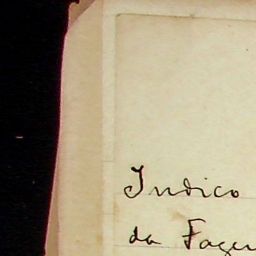 Indico
da Fazen